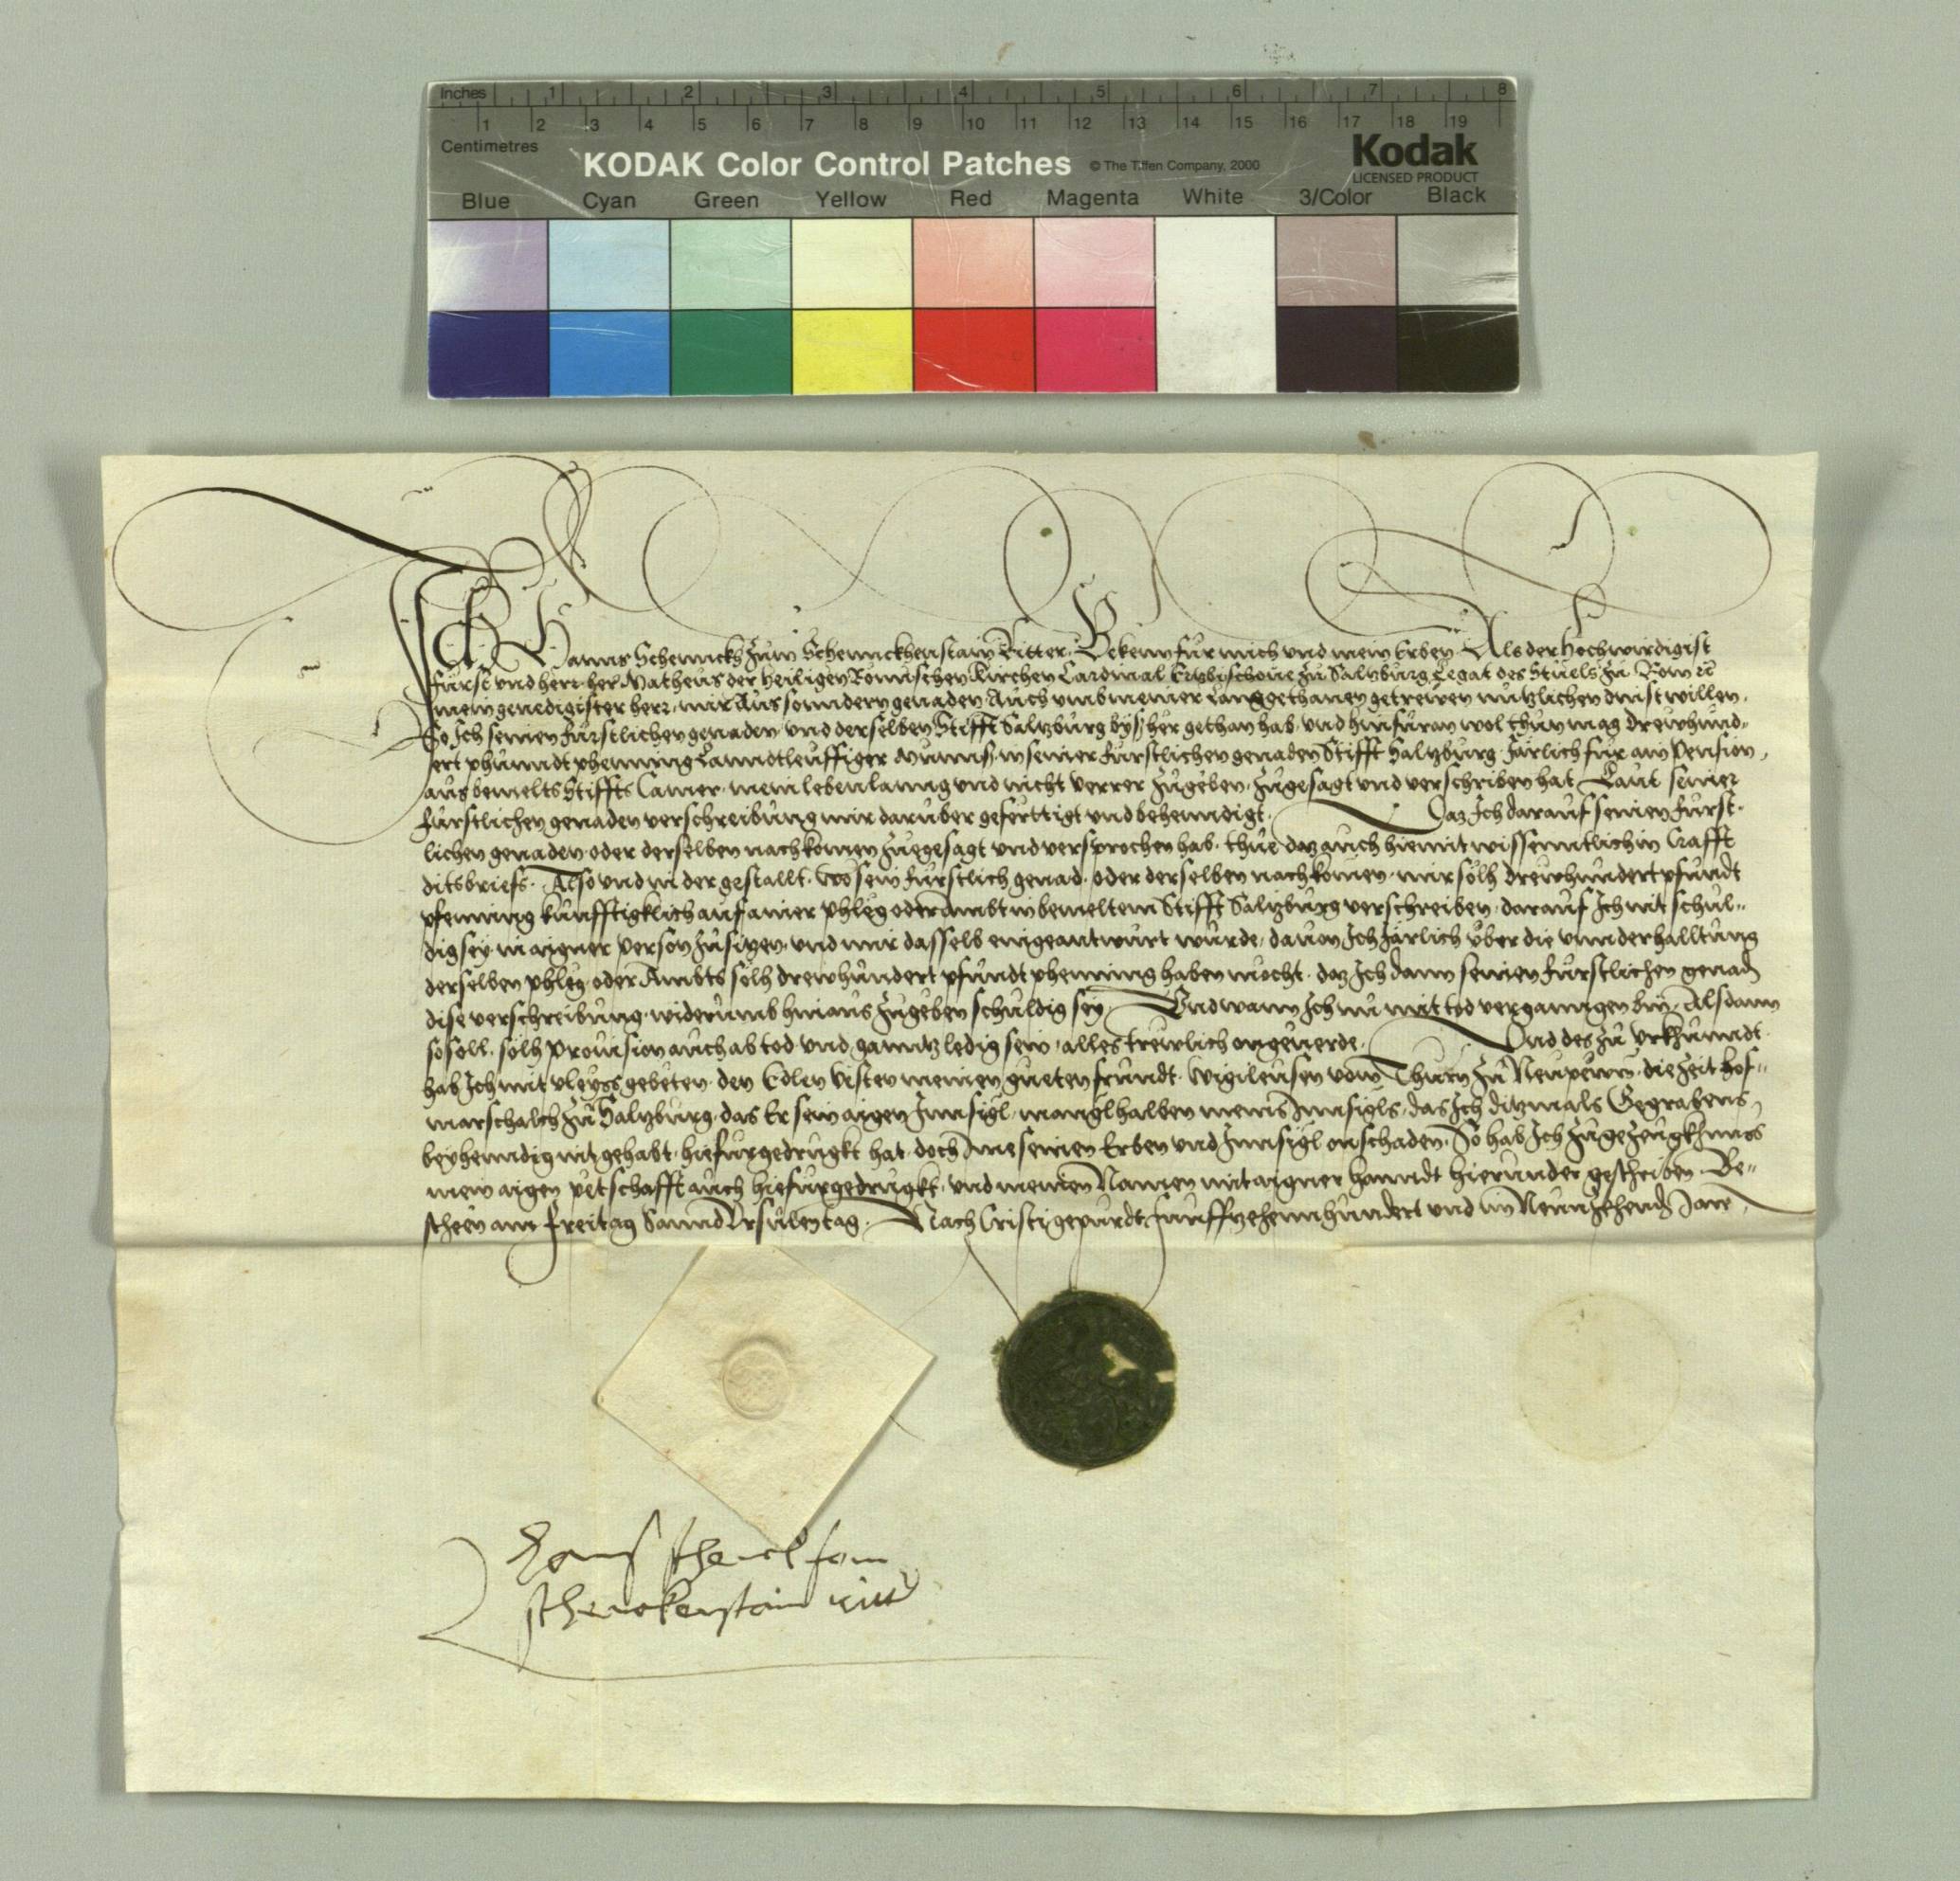 Inches 1 2 3 4 5 6 7 8
1 2 3 4 5 6 7 8 9 10 11 12 13 14 15 16 17 18 19
Centimetres
KODAK Color Control Patches © The Tiffen Company, 2000 Kodak
LICENSED PRODUCT
Blue Cyan Green Yellow Red Magenta White 3/Color Black
Ich Hanns Schennckh zum Schennckhenstain Ritter. Bekenn fur mich und mein Erben Als der Hochwirdigist
furst und herr her Matheus der heiligen Romischen Kirchen Cardinal Ertzbischove zu Saltzburg Legat des Stuels zu Rom
mein genedigister herr, mir Aus sonndern genaden Auch umb meiner langgethanen getrewen nutzlichen dinst willen,
So Ich seinen furstlichen genaden und derselben Stifft Saltzburg bys her gethan hab, und hinfuran wol thun mag drewhund=
ert phunndt phenning Lanndtleuffiger Munns in seiner furstlichen genaden Stifft Saltzburg Järlich fur ain Pension,
aus bemelts Stiffts Camer, mein lebenlanng und nicht verrer zugeben, zugesagt und verschriben hat Laut seiner
furstlichen genaden verschreibung mir daruber geferttigt und behenndigt. Daz Ich darauf seinen furst=
lichen genaden oder derselben nachkomen zuegesagt und versprochen hab, thue daz auch hiemit wissenntlich in Crafft
ditsbriefs. Also und in der gestallt. Wo sein furstlich genad, oder derselben nachkomen, mir solh drewhundert pfundt
pfenning kunfftigklich auf ainer phleg oder ambt in bemeltem Stifft Saltzburg verschreiben, darauf Ich nit schul=
dig sey in aigner person zusitzen, und mir dasselb eingeantwurt wurde, davon Ich Järlich uber die unnderhalltung
derselben phleg oder Ambts solh drewhundert pfundt phenning haben mocht, daz Ich dann seinen furstlichen genaden
dise verschreibung widerumb hinaus zugeben schuldig sey. Und wann Ich nu mit tod verganngen bin, Alsdann
so soll, solh provision auch ab tod und ganntz ledig sein, alles trewlich ongeverde. Und des zu urkhunndt
hab Ich mit vleyss gebeten, den Edlen Vesten meinen gueten frundt, Wigileusen vom Thurn zu Neupewrn, die zeit hof=
marschalch zu Saltzburg, das Er sein aigen Innsigl, manglhalben meins Innsigls, das Ich ditzmals Gegrabens
beyhenndig nit gehabt, hiefurgedruckt hat, doch Ime seinen Erben und Innsigl onschaden, So hab Ich zu gezeugkhnuss
mein aigen petschafft auch hiefurgedrugkt, und meinen Namen mit aigner hanndt hierunder geschriben. Be=
scheen am Freitag Sannd Ursulentag. Nach Cristi gepurdt funffzehennhundert und im Neunzehenden Jare.
Hans schenck fom
schenckenstain ritt